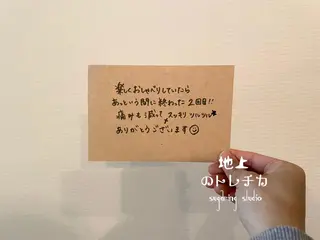 楽しくおしゃべりしていたら
あっという間に終わった2回目!!
痛みも減ってスッキリツルツル
ありがとうございます
地上
のトレチカ